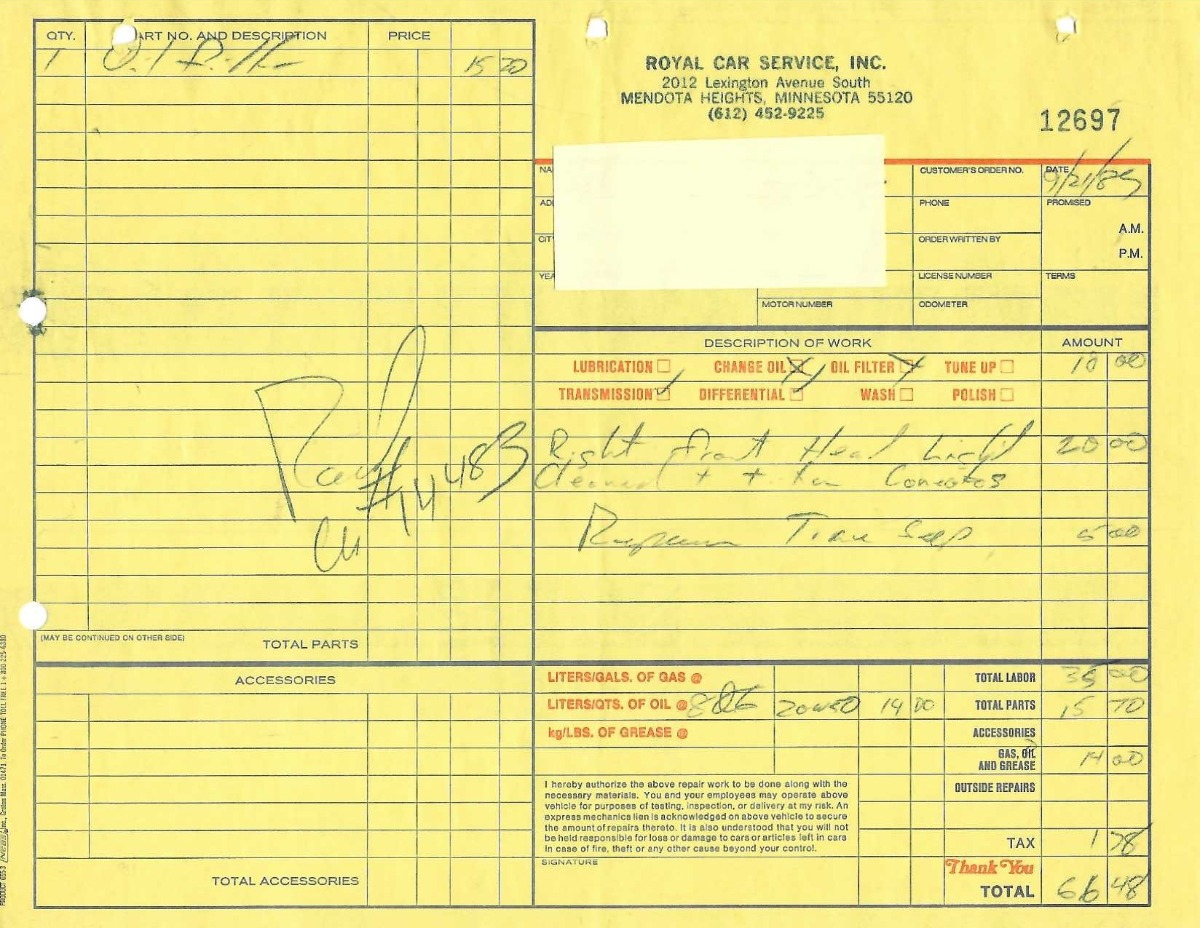 QTY. PART NO. AND DESCRIPTION PRICE
1 Oil Filter 15 70
ROYAL CAR SERVICE, INC.
2012 Lexington Avenue South
MENDOTA HEIGHTS, MINNESOTA 55120
(612) 452-9225
12697
NA
CUSTOMER'S ORDER NO.
DATE
9/21/85
AD
PHONE
PROMISED
A.M.
CIT
ORDER WRITTEN BY
P.M.
YEA
LICENSE NUMBER
TERMS
MOTOR NUMBER
ODOMETER
DESCRIPTION OF WORK AMOUNT
LUBRICATION CHANGE OIL OIL FILTER TUNE UP 10 00
TRANSMISSION DIFFERENTIAL WASH POLISH
Right Front Head Light 20 00
Cleaned + +
5 00
Paid
# 14483
(MAY BE CONTINUED ON OTHER SIDE) TOTAL PARTS
ACCESSORIES
TOTAL ACCESSORIES
LITERS/GALS. OF GAS @ TOTAL LABOR 35 00
LITERS/QTS. OF OIL @ 8 20W50 14 00 TOTAL PARTS 15 70
kg/LBS. OF GREASE @ ACCESSORIES
GAS, OIL
AND GREASE 14 00
OUTSIDE REPAIRS
I hereby authorize the above repair work to be done along with the
necessary materials. You and your employees may operate above
vehicle for purposes of testing, inspection, or delivery at my risk. An
express mechanics lien is acknowledged on above vehicle to secure
the amount of repairs thereto. It is also understood that you will not
be held responsible for loss or damage to cars or articles left in cars
in case of fire, theft or any other cause beyond your control.
SIGNATURE
TAX 1 78
Thank You
TOTAL 66 48